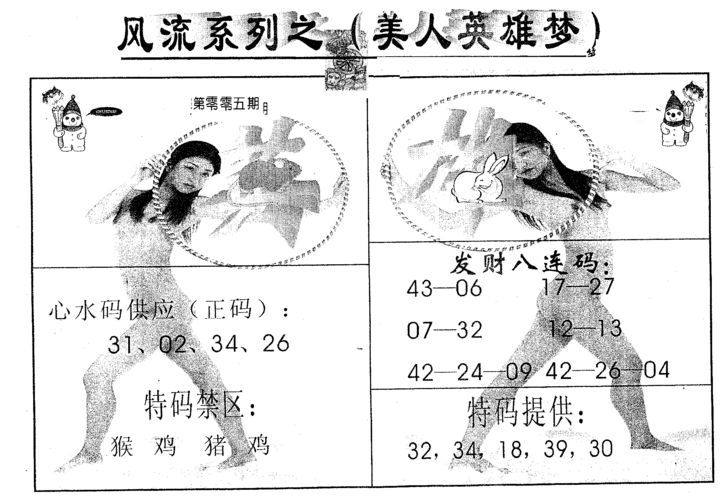 风流系列之(美人英雄梦)
第零零五期
心水码供应(正码):
31、02、34、26
特码禁区:
猴 鸡 猪 鸡
发财八连码:
43—06 17—27
07—32 12—13
42—24—09 42—26—04
特码提供:
32, 34, 18, 39, 30